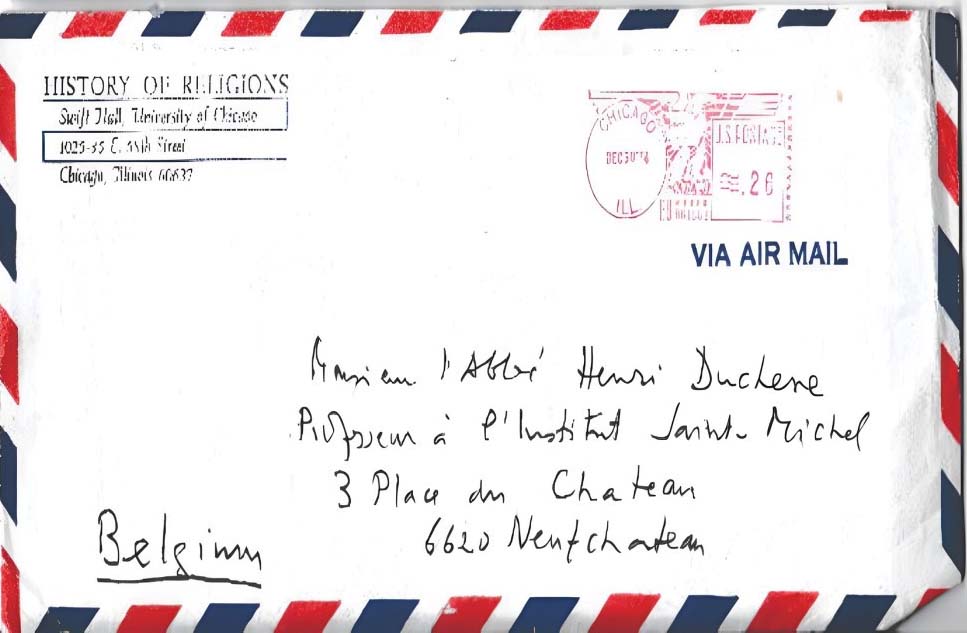 HISTORY OF RELIGIONS
Swift Hall, University of Chicago
1025-35 E. 58th Street
Chicago, Illinois 60637
CHICAGO
DEC 30 '74
ILL.
U.S. POSTAGE
.26
VIA AIR MAIL
Monsieur l'Abbé Henri Duchene
Professeur à l'Institut Saint-Michel
3 Place du Chateau
6620 Neufchateau
Belgium